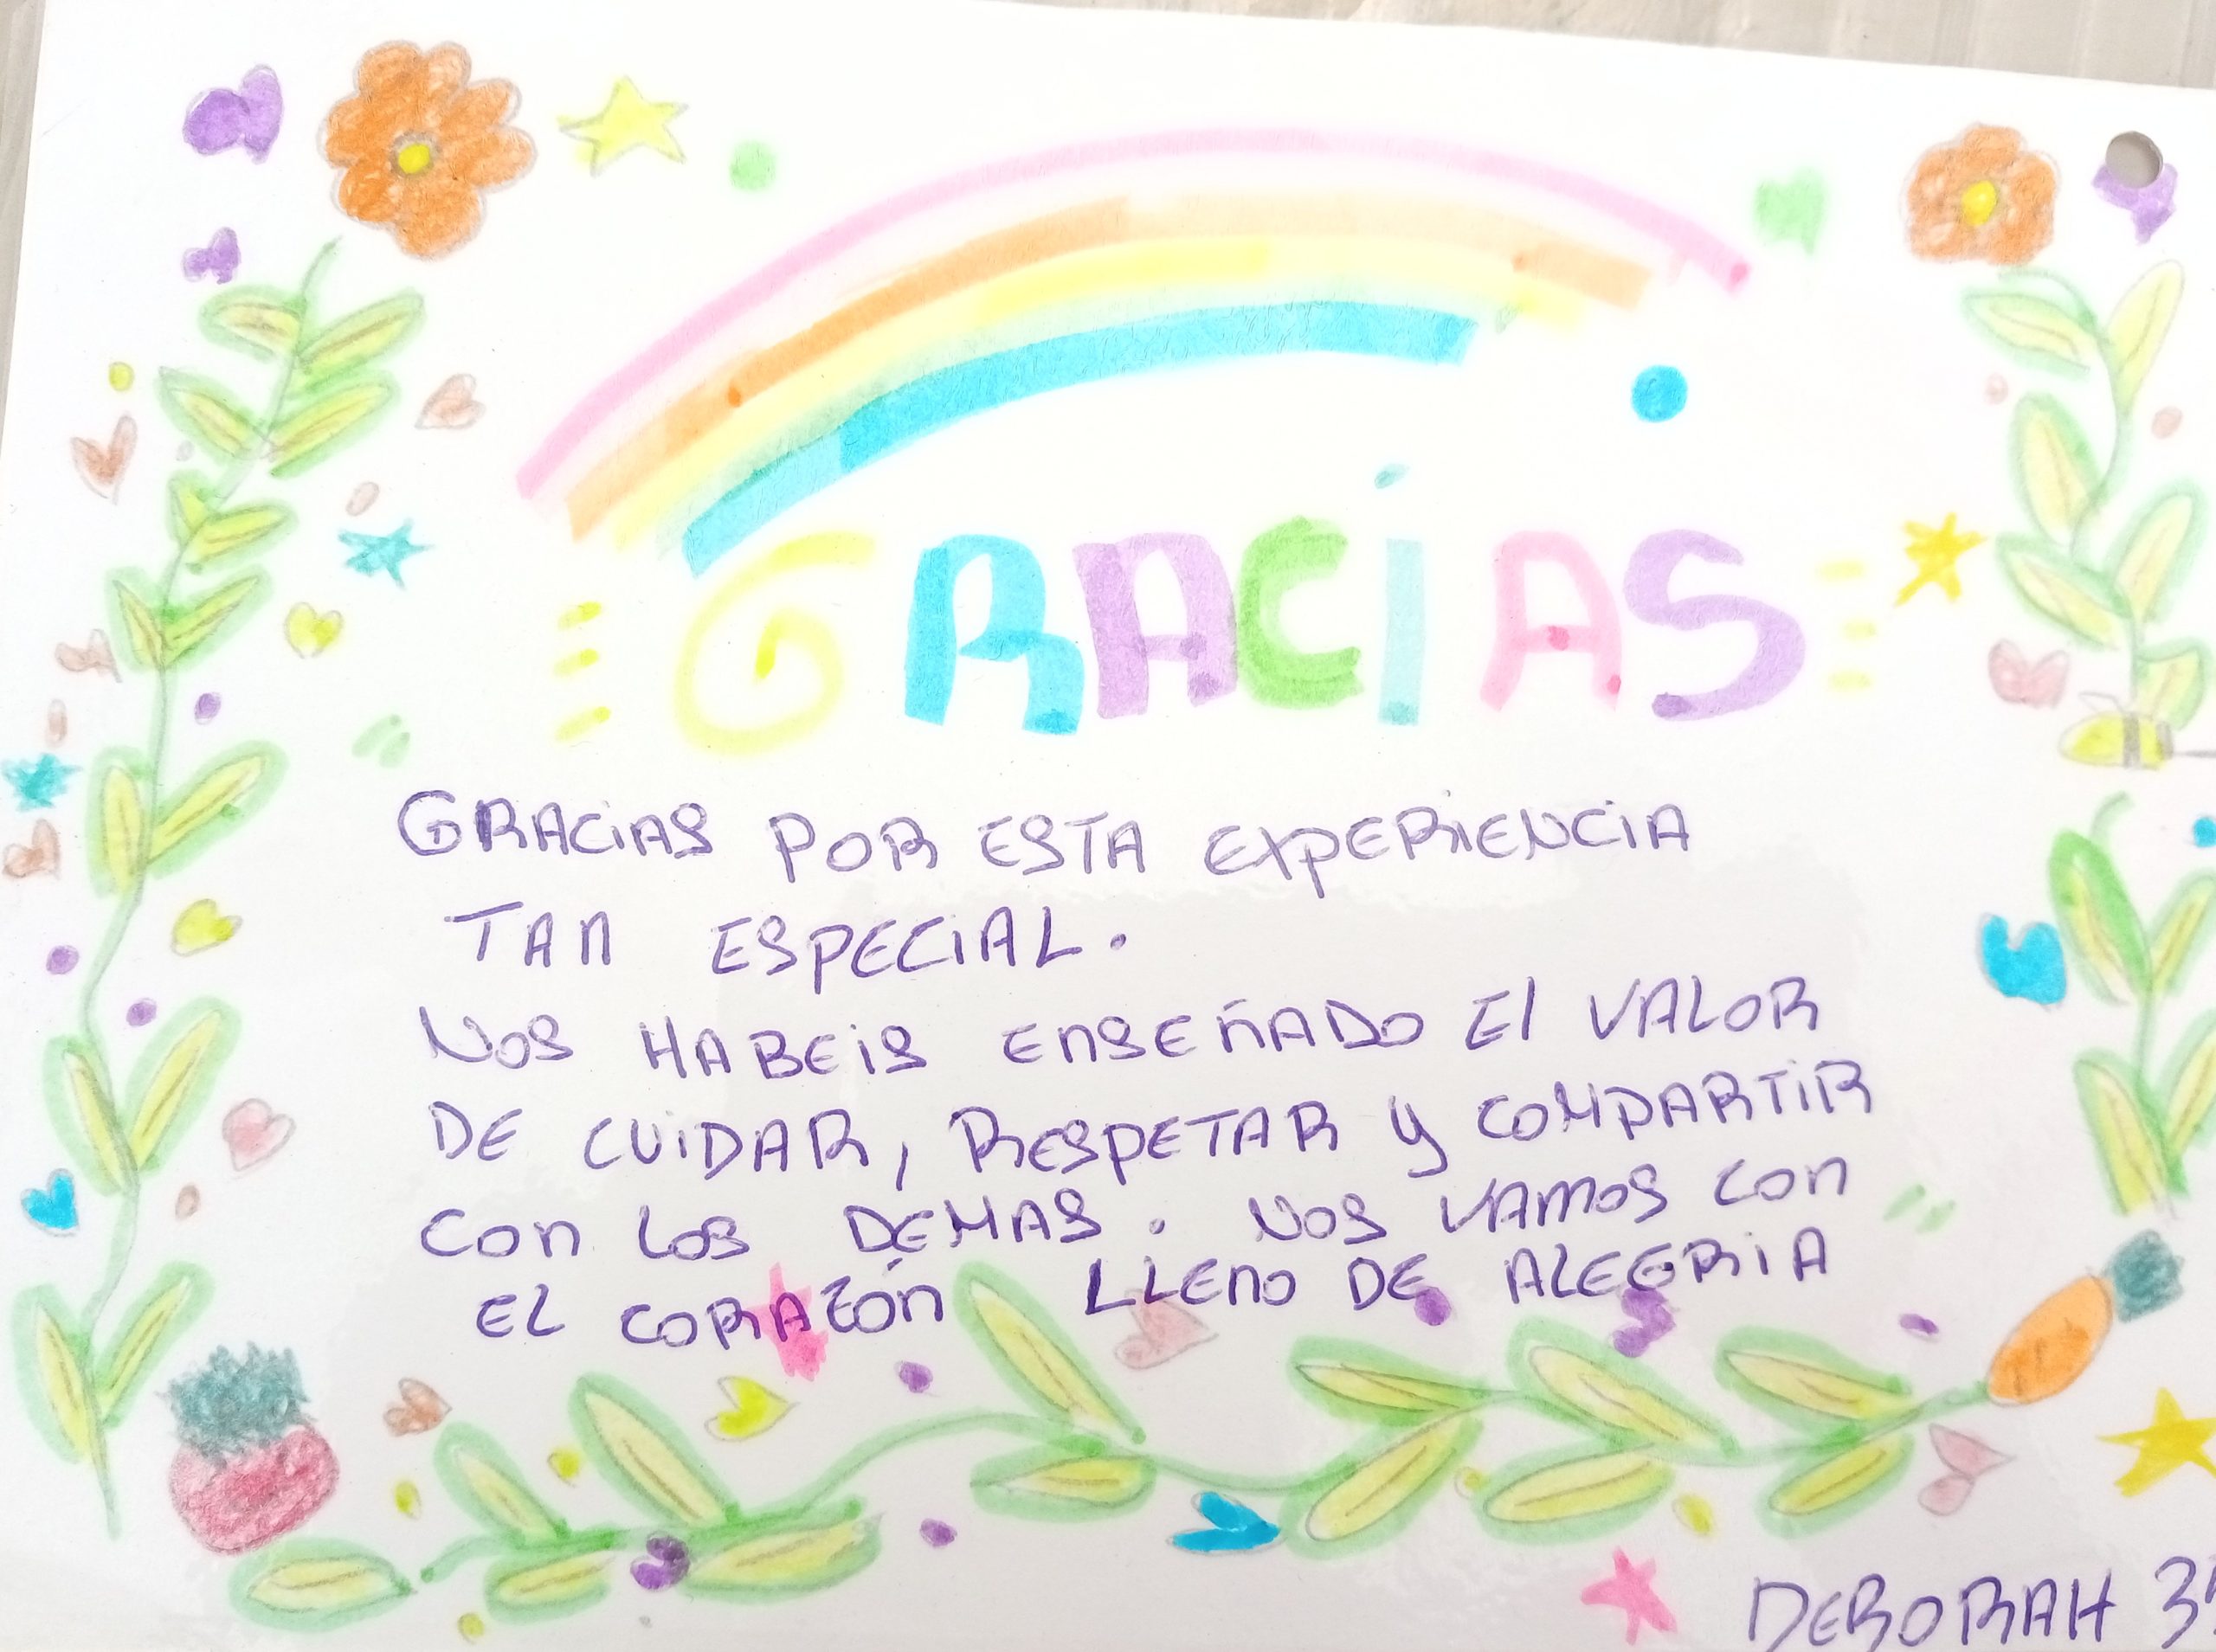 GRACÍAS
GRACIAS POR ESTA EXPERIENCIA
TAN ESPECIAL.
NOS HABEIS ENSEÑADO El VALOR
DE CUIDAR, RESPETAR Y COMPARTIR
CON LOS DEMAS. NOS VAMOS CON
EL CORAZÓN LLENO DE ALEGRIA
DEBORAH 3